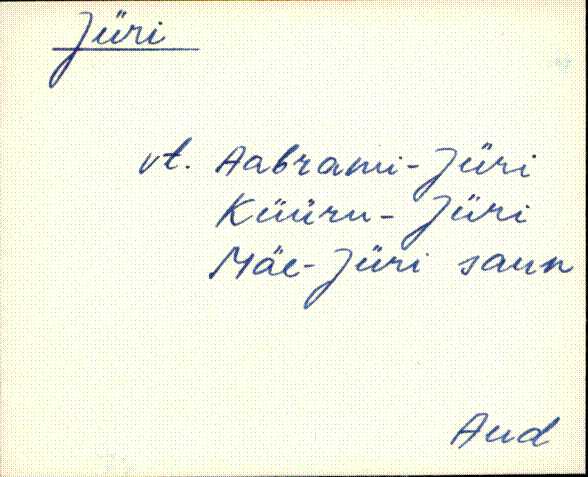 Jüri
vt. Aabrami-Jüri
Küüru-Jüri
Mäe-Jüri saun
Aud